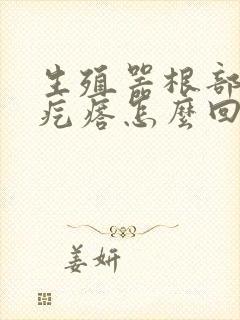 生殖器根部
疙瘩怎麼回
姜妍